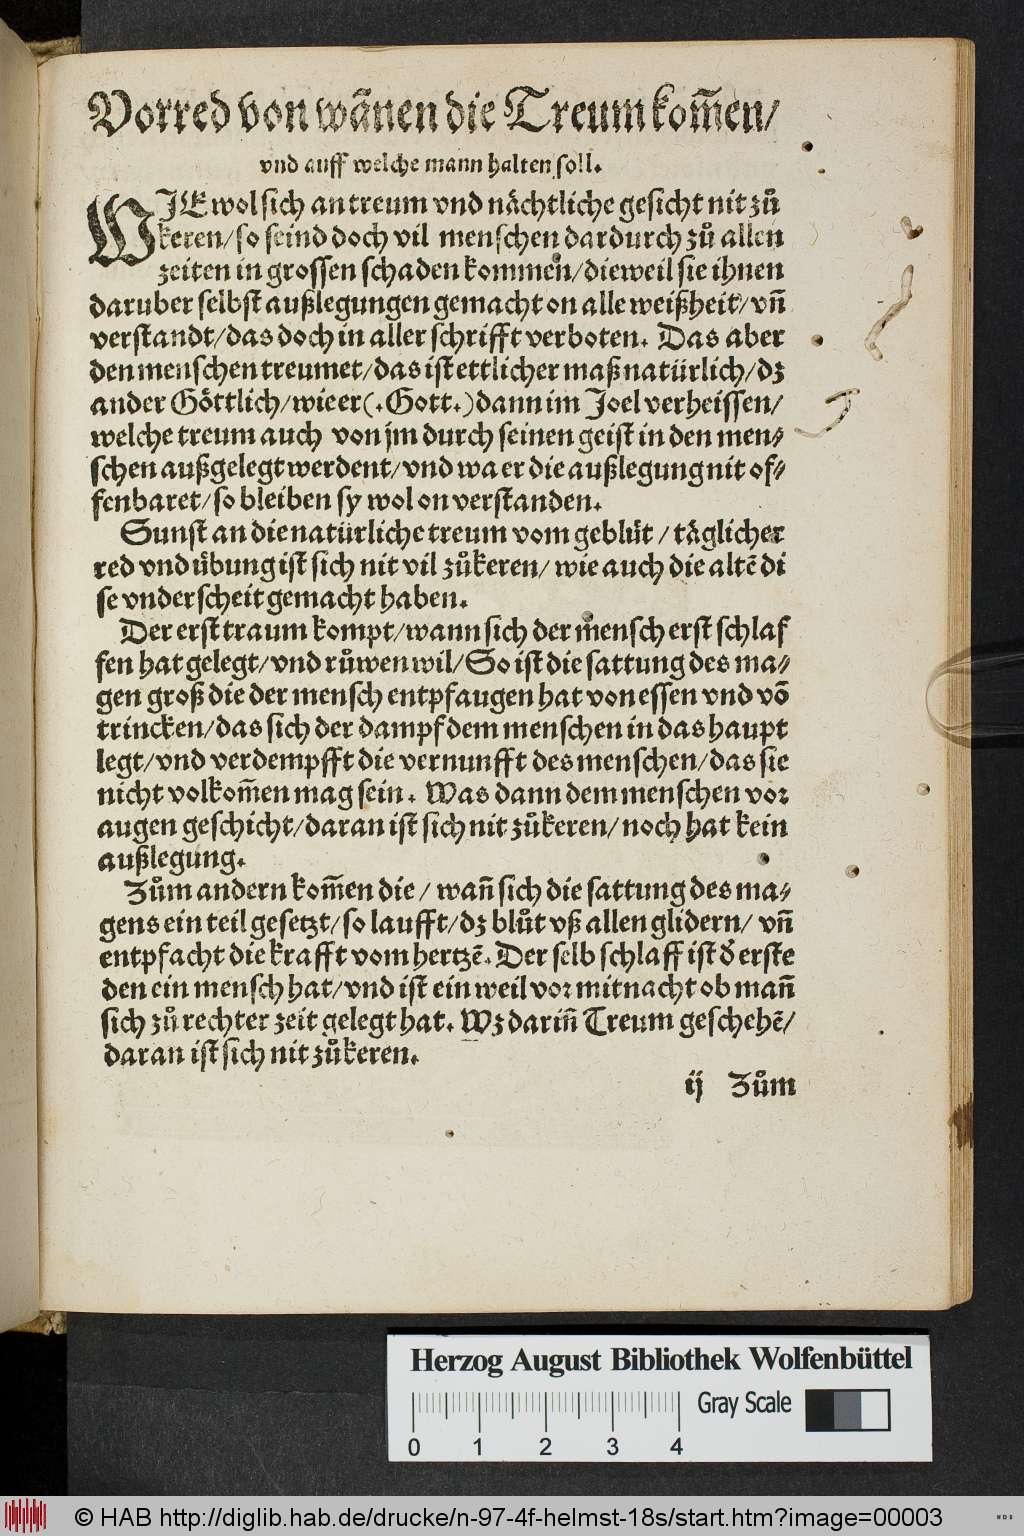 Vorred von wãnen die Treum kom̃en/
vnd auff welche mann halten soll.
WIE wol sich an treum vnd nächtliche gesicht nit zů
keren/ so seind doch vil menschen dardurch zů allen
zeiten in grossen schaden kommen/ dieweil sie ihnen
daruber selbst außlegungen gemacht on alle weißheit/ vñ
verstandt/ das doch in aller schrifft verboten. Das aber
den menschen treumet/ das ist ettlicher maß natürlich/ dz
ander Göttlich/ wie er (.Gott.) dann im Joel verheissen/
welche treum auch von jm durch seinen geist in den men⸗
schen außgelegt werdent/ vnd wa er die außlegung nit of⸗
fenbaret/ so bleiben sy wol on verstanden.
Sunst an die natürliche treum vom geblüt / täglicher
red vnd übung ist sich nit vil zůkeren/ wie auch die altẽ di
se vnderscheit gemacht haben.
Der erst traum kompt/ wann sich der mensch erst schlaf
fen hat gelegt/ vnd růwen wil/ So ist die sattung des ma⸗
gen groß die der mensch entpfaugen hat von essen vnd võ
trincken/ das sich der dampf dem menschen in das haupt
legt/ vnd verdempfft die vernunfft des menschen/ das sie
nicht volkom̃en mag sein. Was dann dem menschen vor
augen geschicht/ daran ist sich nit zůkeren/ noch hat kein
außlegung.
Zům andern kom̃en die / wañ sich die sattung des ma⸗
gens ein teil gesetzt/ so laufft/ dz blůt vß allen glidern/ vñ
entpfacht die krafft vom hertzẽ. Der selb schlaff ist d̓ erste
den ein mensch hat/ vnd ist ein weil vor mitnacht ob mañ
sich zů rechter zeit gelegt hat. Wz dariñ Treum geschehẽ/
daran ist sich nit zůkeren.
ij Zům
Herzog August Bibliothek Wolfenbüttel
Gray Scale
0 1 2 3 4
© HAB http://diglib.hab.de/drucke/n-97-4f-helmst-18s/start.htm?image=00003